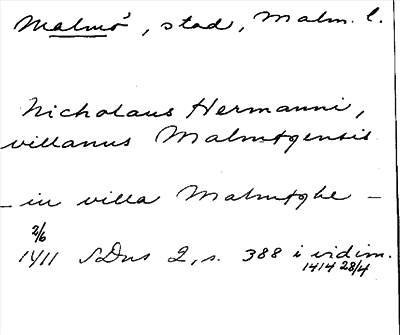 Malmö, stad, Malm. l.
Nicholaus Hermanni,
villanus Malmøgensis
_ in villa Malmøghe _
2/6
1411 SDns 2, s. 388 i vidim.
1414 28/4